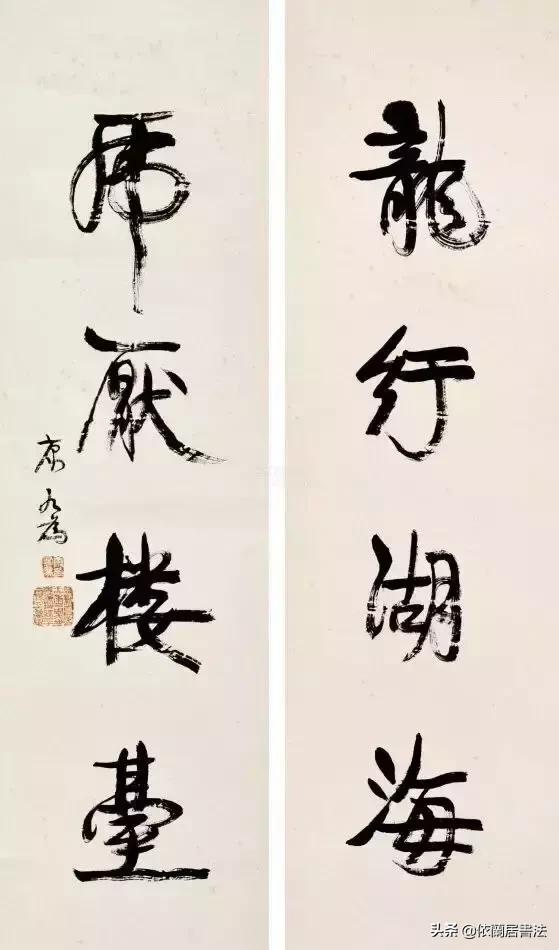 龍行湖海
虎厭楼臺
康有為
头条 @依蘭居書法